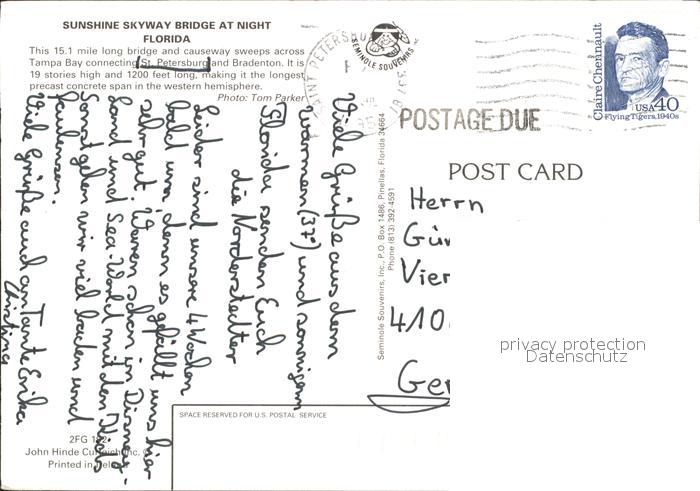 SUNSHINE SKYWAY BRIDGE AT NIGHT
FLORIDA
This 15.1 mile long bridge and causeway sweeps across
Tampa Bay connecting St. Petersburg and Bradenton. It is
19 stories high and 1200 feet long, making it the longest
precast concrete span in the western hemisphere.
Photo: Tom Parker
Viele Grüße aus dem
warmen (37°) und sonnigem
Florida senden Euch
die Norderstedter
Leider sind unsere 4 Wochen
bald um denn es gefällt uns hier
sehr gut. Waren schon in Disney-
Land und Sea-World mit den
Sonst gehen wir viel baden und
faulenzen.
Viele Grüße auch an Tante Erika
Christina
2FG
John Hinde Curteich, Inc.
Printed in Ireland
SEMINOLE SOUVENIRS
Seminole Souvenirs, Inc., P.O. Box 1486, Pinellas, Florida 34664
Phone (813) 392-4591
SAINT PETERSBURG
POSTAGE DUE
Claire Chennault
USA 40
Flying Tigers, 1940s
POST CARD
Herrn
Gün
Vier
410
Ger
privacy protection
Datenschutz
SPACE RESERVED FOR U.S. POSTAL SERVICE